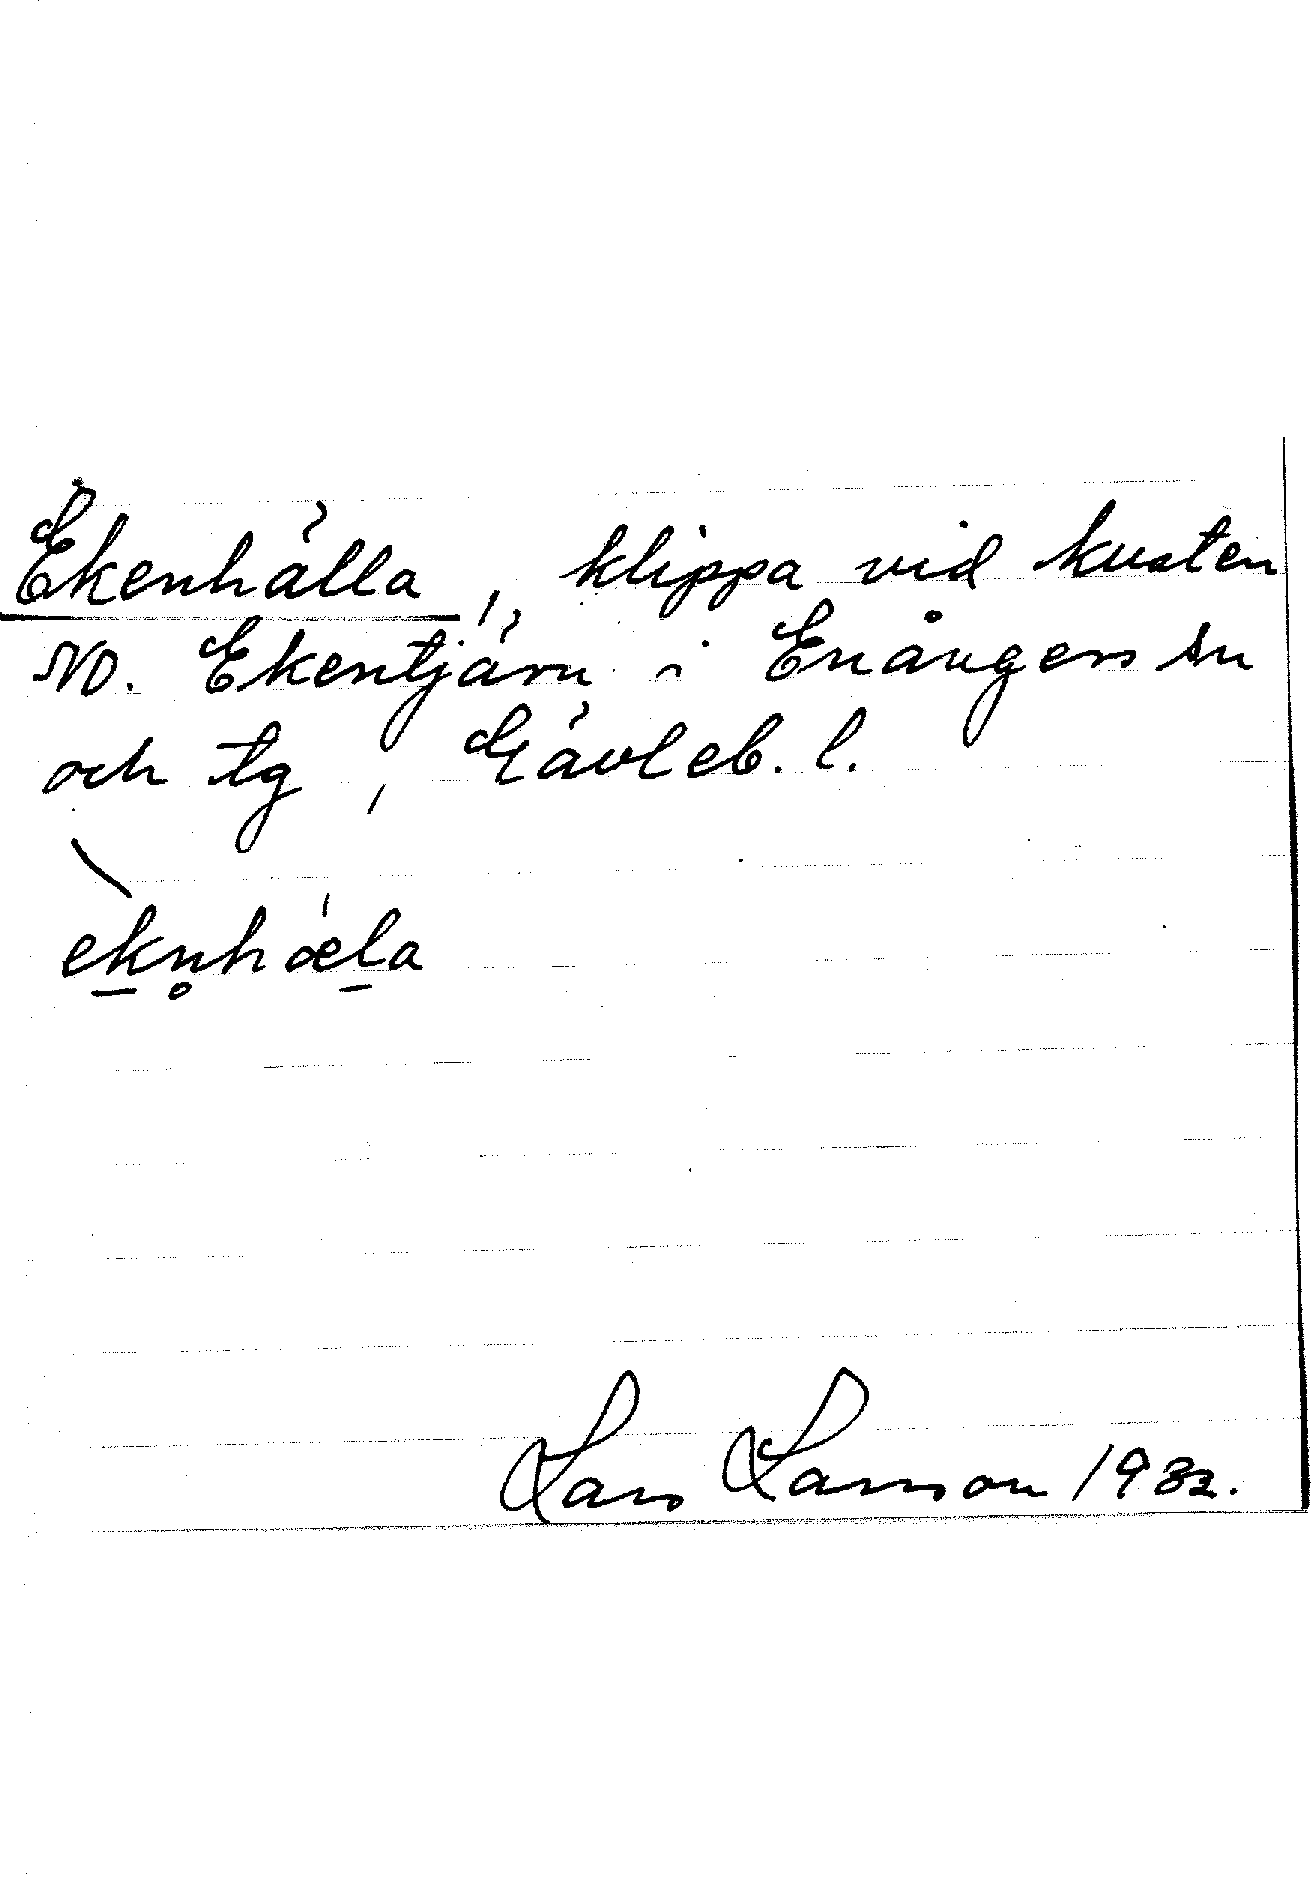 Ekenhälla, klippa vid kusten
NO. Ekentjärn i Enångers sn
och tg, Gävleb. l.
èkn̥hæ̀la
Lars Larsson 1932.